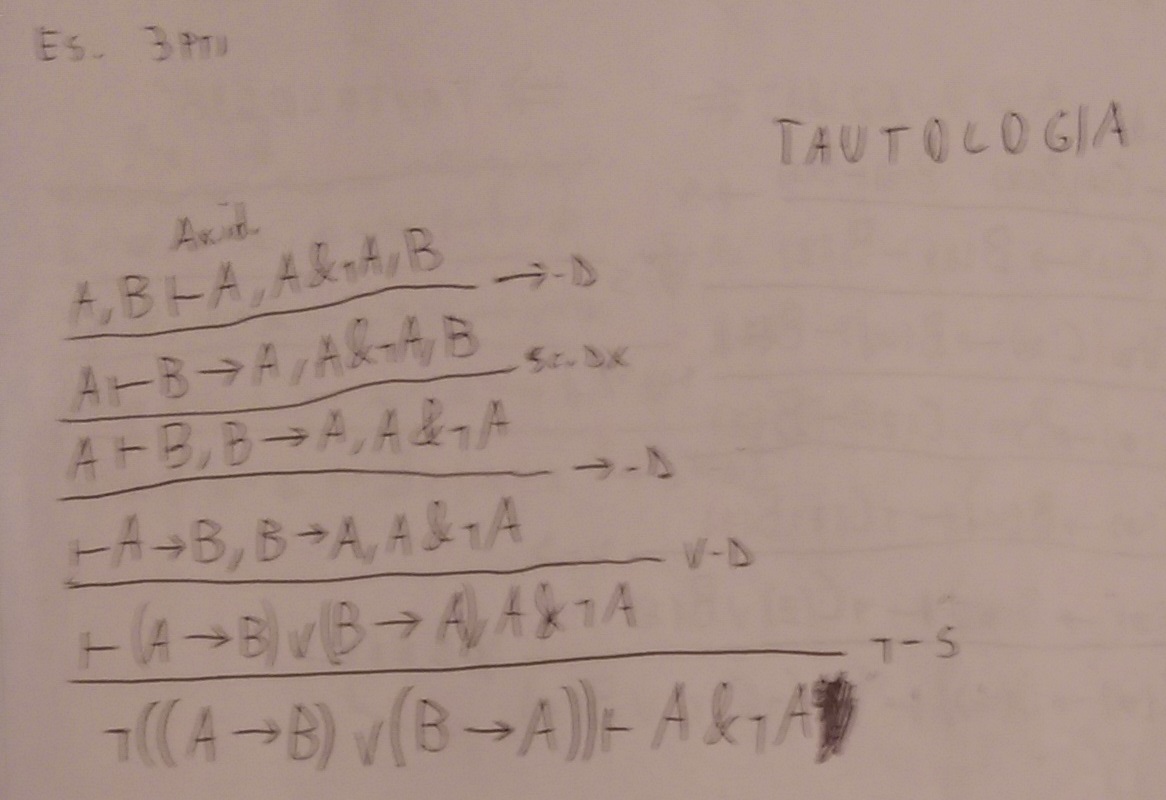 Es. 3 PTI
TAUTOLOGIA
A, B ⊢ A, A & ¬A, B →-D
A ⊢ B → A, A & ¬A, B sc. DX
A ⊢ B, B → A, A & ¬A →-D
⊢ A → B, B → A, A & ¬A ∨-D
⊢ (A → B) ∨ (B → A), A & ¬A ¬-S
¬((A → B) ∨ (B → A)) ⊢ A & ¬A